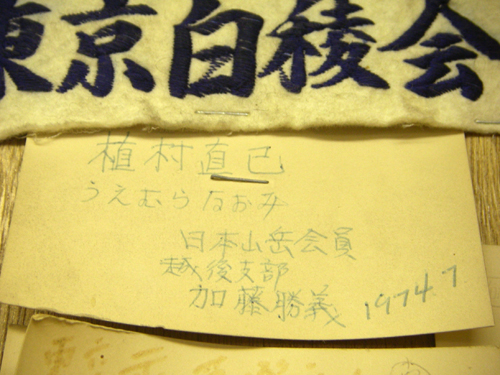 東京白稜会
植村直己
うえむらなおみ
日本山岳会員
越後支部
加藤勝義 1974.7